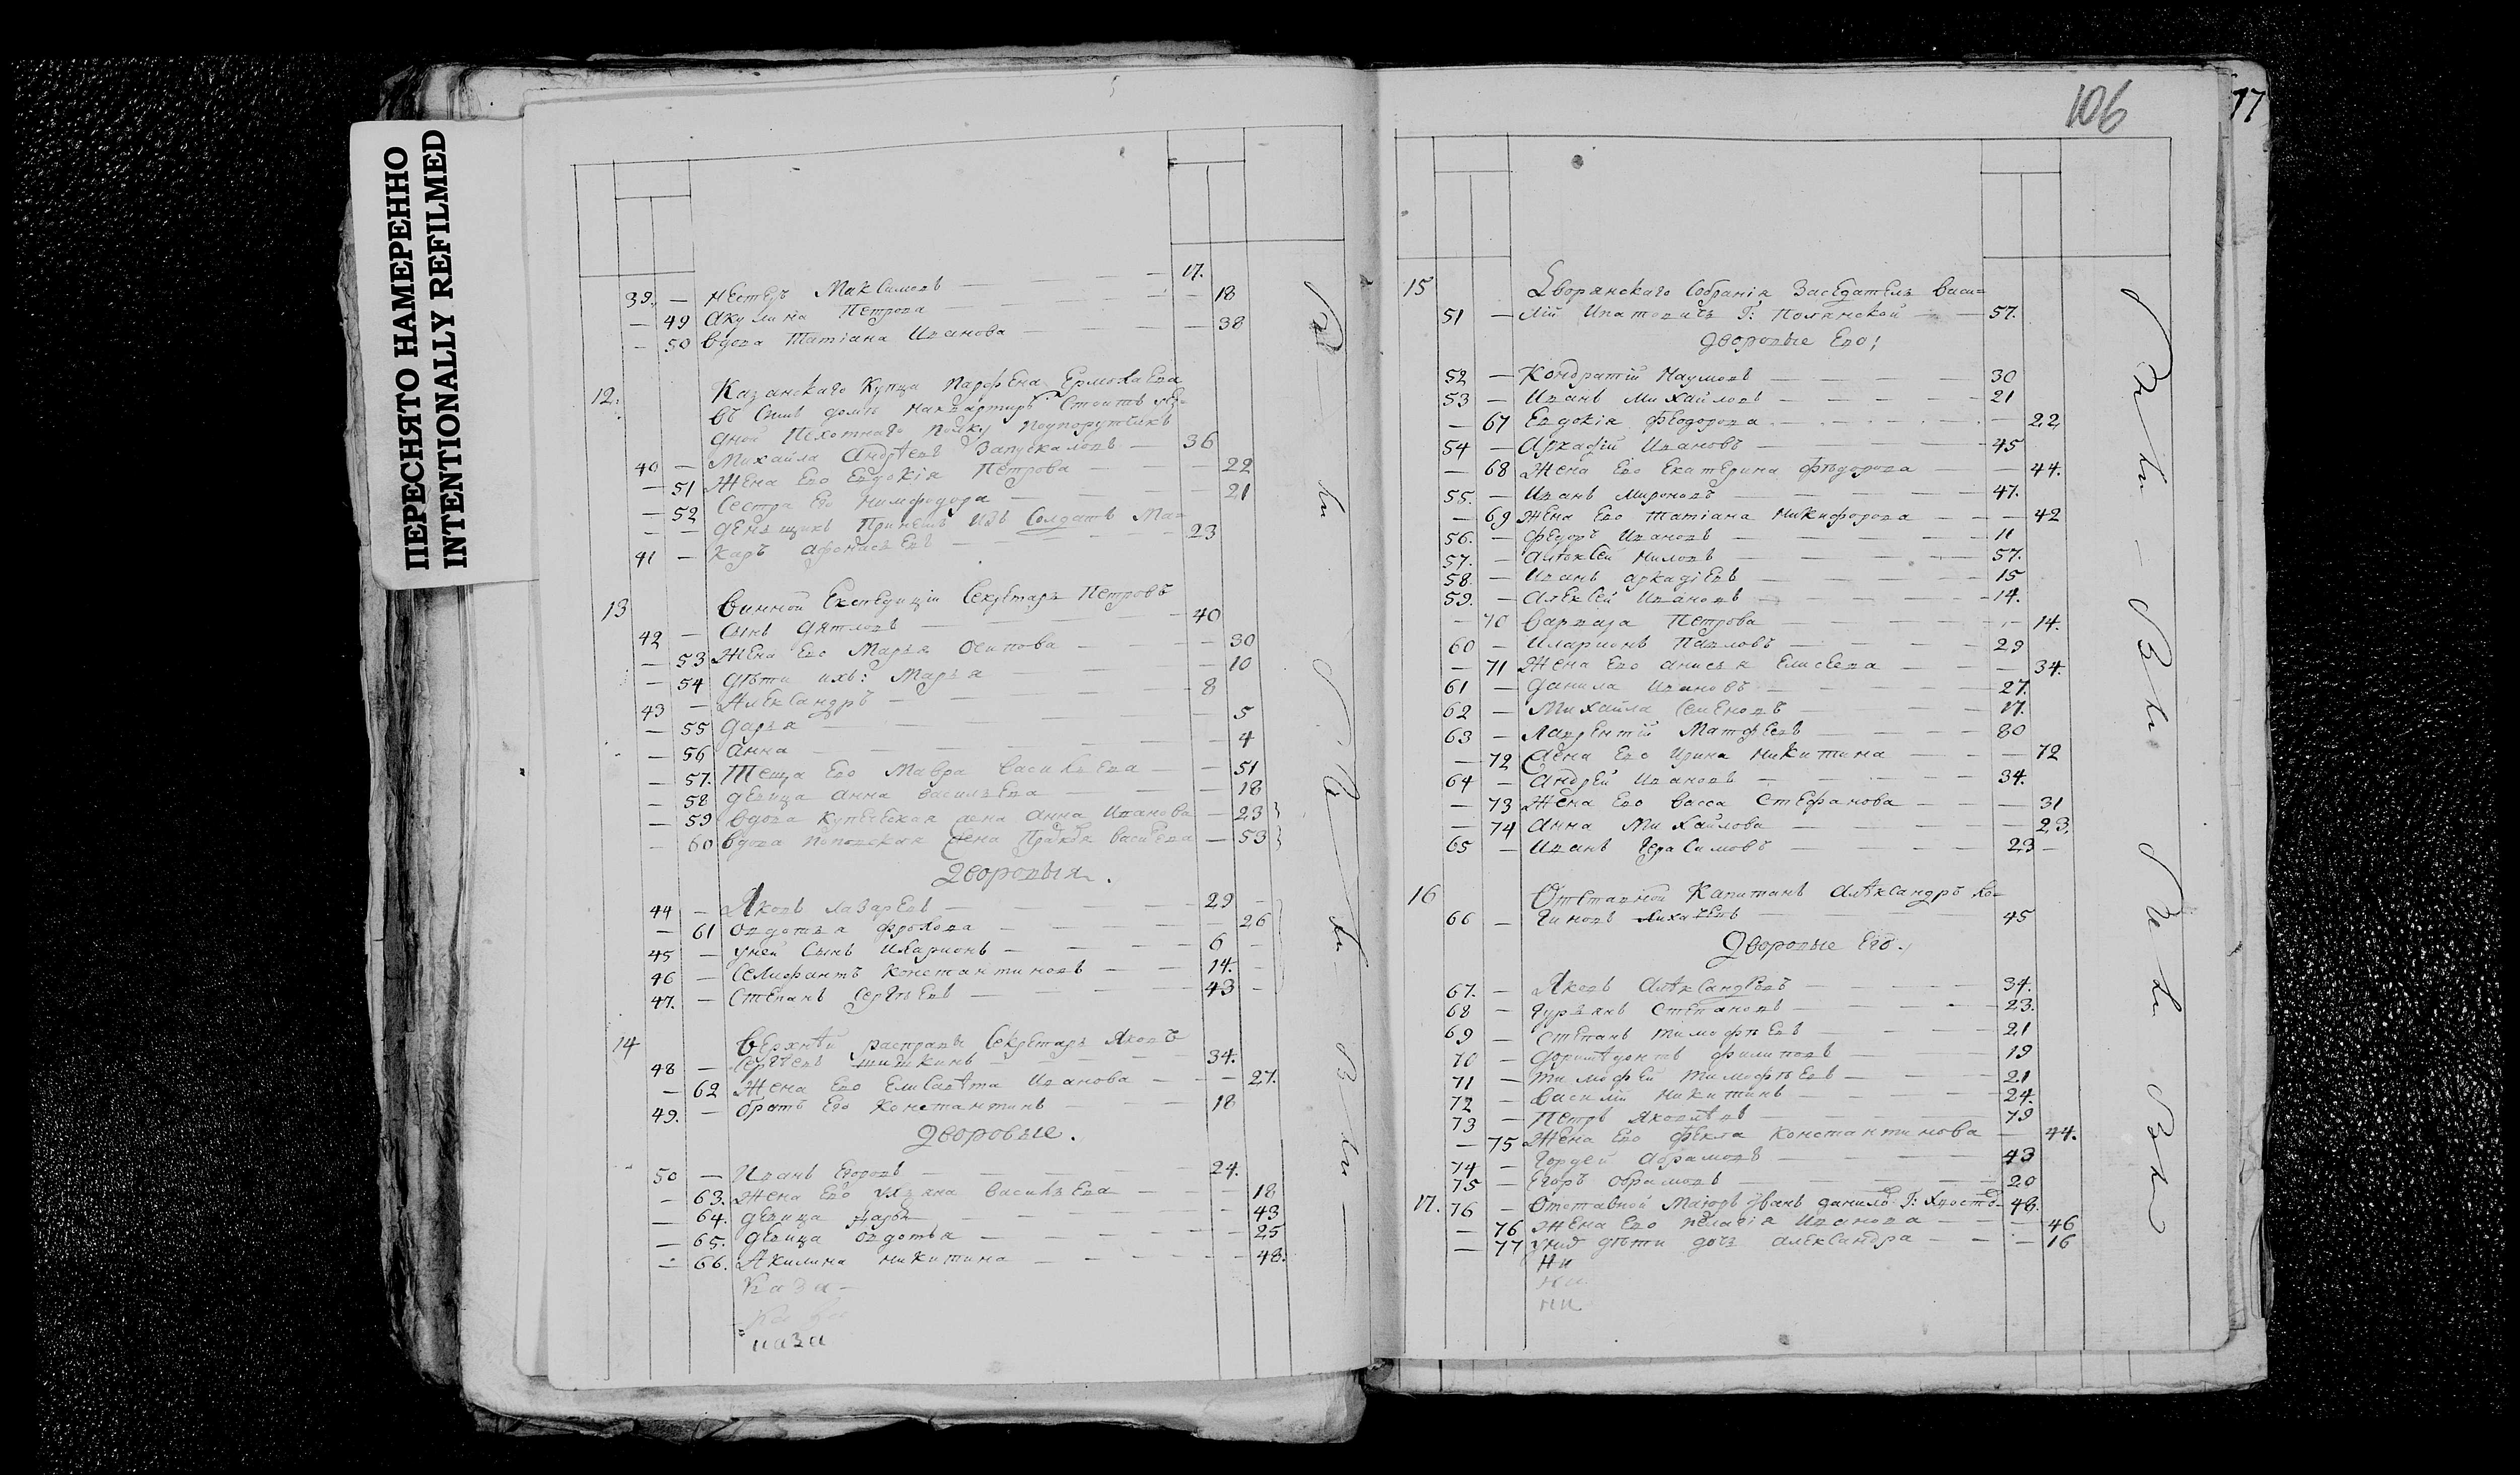 ПЕРЕСНЯТО НАМЕРЕННО
INTENTIONALLY REFILMED
39. — Нестеръ Максимовъ — 17.
— 49 Акулина Петрова — 18
— 50 Вдова Татіана Иванова — 38
12. Казанскаго Купца Парфена Ермолаева
въ домѣ на квартирѣ Стоитъ
Пехотнаго полку Подпорутчикъ
40 — Михайла Андрѣевъ Запускаловъ — 36
— 51 Жена Ево Евдокія Петрова — 22
— 52 Сестра Ево Нимфодора — 21
— — денщикъ изъ Солдатъ Ма-
41 — каръ Афонасьевъ — 23
13 Винной Експедиціи Секретарь Петровъ
42 — Сынъ Дятловъ — 40
— 53 Жена Ево Марья Осипова — 30
— 54 дѣти ихъ: Марья — 10
43 — Александръ — 8
— 55 Дарья — 5
— 56 Анна — 4
— 57. Теща Ево Мавра Васильева — 51
— 58 девица Анна Васильева — 18
— 59 Вдова Купеческая жена Анна Иванова — 23
— 60 Вдова Поповская жена Васильева — 53
Дворовыя.
44 — Яковъ Лазаревъ — 29
— 61 Овдотья Фролова — 26
45 — у ней Сынъ Иларионъ — 6
46 — Селифантъ Константиновъ — 14.
47. — Степанъ Сергѣевъ — 43
14 Верхнѣй расправы Секретарь Яковъ
48 — Сергѣевъ Шишкинъ — 34.
— 62 Жена Ево Елисавѣта Иванова — 27.
49. — братъ Ево Константинъ — 18
Дворовые.
50 — Иванъ Егоровъ — 24.
— 63. Жена Ево Ульяна Васильева — 18
— 64. девица Дарья — 43
— 65. девица Овдотья — 25
— 66. Акилина Никитина — 48.
Каза-
наза
106
77
15 Дворянскаго Собранія Заседатель Васи=
51 — лій Ипатовичъ Г: Полянской — 57.
Дворовые Ево:
52 — Кондратій Наумовъ — 30
53 — Иванъ Михайловъ — 21
— 67 Евдокія Феодорова — 22
54 — Аркадій Ивановъ — 45
— 68 Жена Ево Екатерина Фѣдорова — 44.
55. — Иванъ Мироновъ — 47.
— 69 Жена Ево Татіана Никифорова — 42
56. — Федоръ Ивановъ — 11
57. — Алѣксей Ниловъ — 57.
58. — Иванъ Аркадіевъ — 15
59. — Алексей Ивановъ — 14.
— 70 Варвара Петрова — 14.
60 — Иларионъ Павловъ — 29
— 71 Жена Ево Анисья Елисеева — 34.
61 — Данила Ивановъ — 27.
62 — Михайла Семеновъ — 17.
63 — Лаврентій Матфеевъ — 80
— 72 Жена Ево Ирина Никитина — 72
64 — Андрей Ивановъ — 34.
— 73 Жена Ево Васса Стефанова — 31
— 74 Анна Михайлова — 23.
65 — Иванъ Герасимовъ — 23 —
16 Отставной Капитанъ Алѣксандръ Ло-
66 — гиновъ Лихачевъ — 45
Дворовые Ево.
67. — Яковъ Алѣксандровъ — 34.
68 — Гурьянъ Степановъ — 23.
69 — Степанъ Тимофѣевъ — 21
70 — Доримѣдонтъ Филиповъ — 19
71 — Тимофей Тимофѣевъ — 21
72 — Василій Никитинъ — 24.
73 — Петръ Яковлѣвъ — 79
— 75 Жена Ево Фекла Константинова — 44.
74 — Гордей Абрамовъ — 43
75 — Егоръ Обрамовъ — 20
17. 76 — Отставной Маіоръ Иванъ Данило Г: — 46.
— 76 Жена Ево Пелагія Иванова — 46
— 77 у нид дѣти дочь Александра — 16
ни
ни
ни